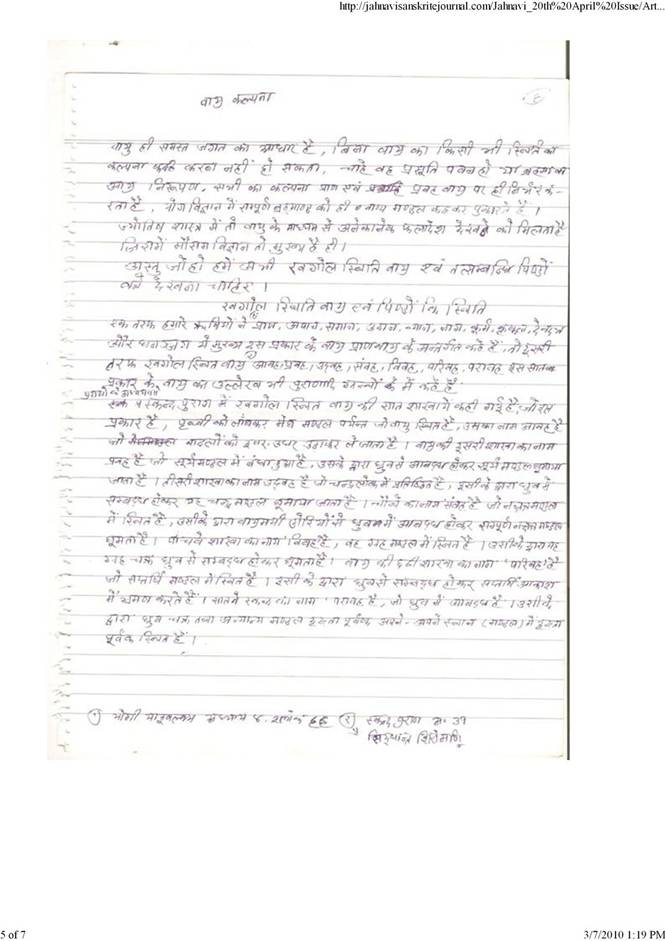 http://jahnavisanskritejournal.com/Jahnavi_20th%20April%20Issue/Art...
वायु कल्पना
वायु ही समस्त जगत का आधार है, बिना वायु का किसी भी स्थिति का
कल्पना करना नहीं हो सकता, चाहे वह प्रसूति पवन हो या
आयु निरूपण, सभी का कल्पना प्राण एवं प्रवह वायु पर ही निर्भर क-
रता है, योग विज्ञान में सम्पूर्ण ब्रह्माण्ड को ही वायु मण्डल कहकर पुकारते हैं ।
ज्योतिष शास्त्र में तो वायु के माध्यम से अनेकानेक फलादेश देखने को मिलता है
जिसमें मौसम विज्ञान तो मुख्य है ही ।
अस्तु जो हो हमें अभी खगोल स्थिति वायु एवं तत्सम्बन्धि पिण्डों
को देखना चाहिए ।
खगोल स्थिति वायु एवं पिण्डों कि स्थिति
एक तरफ हमारे ऋषियों ने प्राण, अपान, समान, उदान, व्यान, नाग, कूर्म, कृकल, देवदत्त
और धनञ्जय में मुख्य दस प्रकार के वायु प्राणवायु के अन्तर्गत कहे हैं, तो दूसरी
तरफ खगोल स्थित वायु आवह, प्रवह, उद्वह, संवह, विवह, परिवह, परावह इस सात
प्रकार के वायु का उल्लेख भी पुराणादि ग्रन्थों में कहे हैं
स्कन्द पुराण में खगोल स्थित वायु की सात शाखायें कही गई है, जो इस
प्रकार है, पृथ्वी को लांघकर मेघ मण्डल पर्यन्त जो वायु स्थित है, उसका नाम आवह है
जो बादलों को इधर-उधर उड़ाकर ले जाता है । वायु की दूसरी शाखा का नाम
प्रवह है जो सूर्यमण्डल में बंधा हुआ है, उसके द्वारा ध्रुव से आबद्ध होकर सूर्य मण्डल घुमाया
जाता है । तीसरी शाखा का नाम उद्वह है जो चन्द्रलोक में प्रतिष्ठित है । इसी के द्वारा ध्रुव से
सम्बद्ध होकर यह चन्द्र मण्डल घुमाया जाता है । चौथे का नाम संवह है जो नक्षत्र मण्डल
में स्थित है, उसीके द्वारा वायुमयी डोरियों से ध्रुव में आबद्ध होकर सम्पूर्ण नक्षत्र मण्डल
घूमता है । पांचवे शाखा का नाम विवह है, वह ग्रह मण्डल में स्थित है । उसीके द्वारा यह
ग्रह चक्र ध्रुव से सम्बद्ध होकर घूमता है । वायु की छठी शाखा का नाम 'परिवह' है
जो सप्तर्षि मण्डल में स्थित है । इसी के द्वारा ध्रुव से सम्बद्ध होकर सप्तर्षि आकाश
में भ्रमण करते हैं । सातवे स्कन्ध का नाम परावह है, जो ध्रुव में आबद्ध है । उसीके
द्वारा ध्रुव चक्र तथा अन्यान्य मण्डल दृढ़ता पूर्वक अपने-अपने स्थान (मण्डल) में दृढ़ता
पूर्वक स्थित हैं ।
(१) योगी याज्ञवल्क्य अध्याय ४. श्लोक 66 (२) स्कन्द पुराण अ. 39
सिद्धान्त शिरोमणि
5 of 7
3/7/2010 1:19 PM